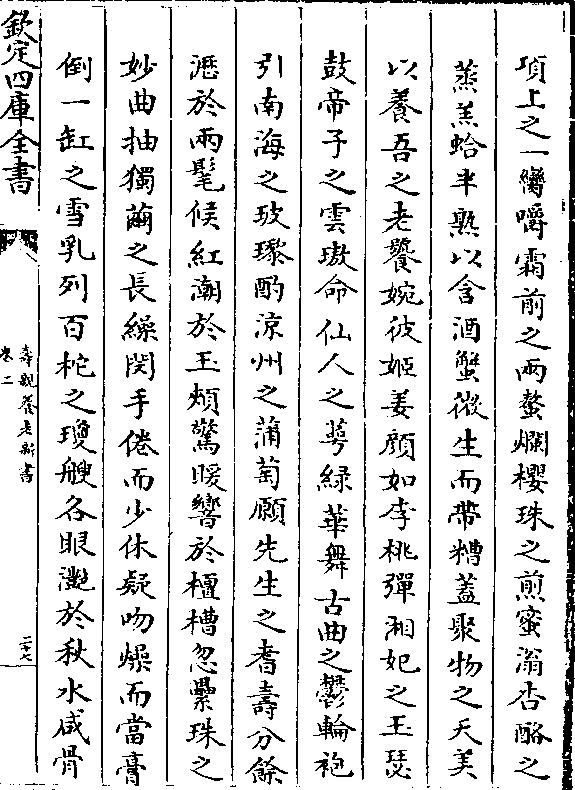 項上之一臠嚼霜前之兩螯爛櫻珠之煎蜜滃杏酪之
蒸羔蛤半熟以含酒蟹微生而帶糟蓋聚物之夭美
以養吾之老饕婉彼姬姜顔如李桃彈湘妃之玉瑟
鼓帝子之雲璈命仙人之萼緑華舞古曲之鬱輪袍
引南海之玻瓈酌涼州之蒲萄願先生之耆壽分餘
瀝於兩髦候紅潮於玉頰驚暖響於檀槽忽纍珠之
妙曲抽獨繭之長繰閔手倦而少休疑吻燥而當膏
倒一缸之雪乳列百柁之瓊艘各眼灔於秋水咸骨
欽定四庫全書
壽親養老新書
卷二
二十七